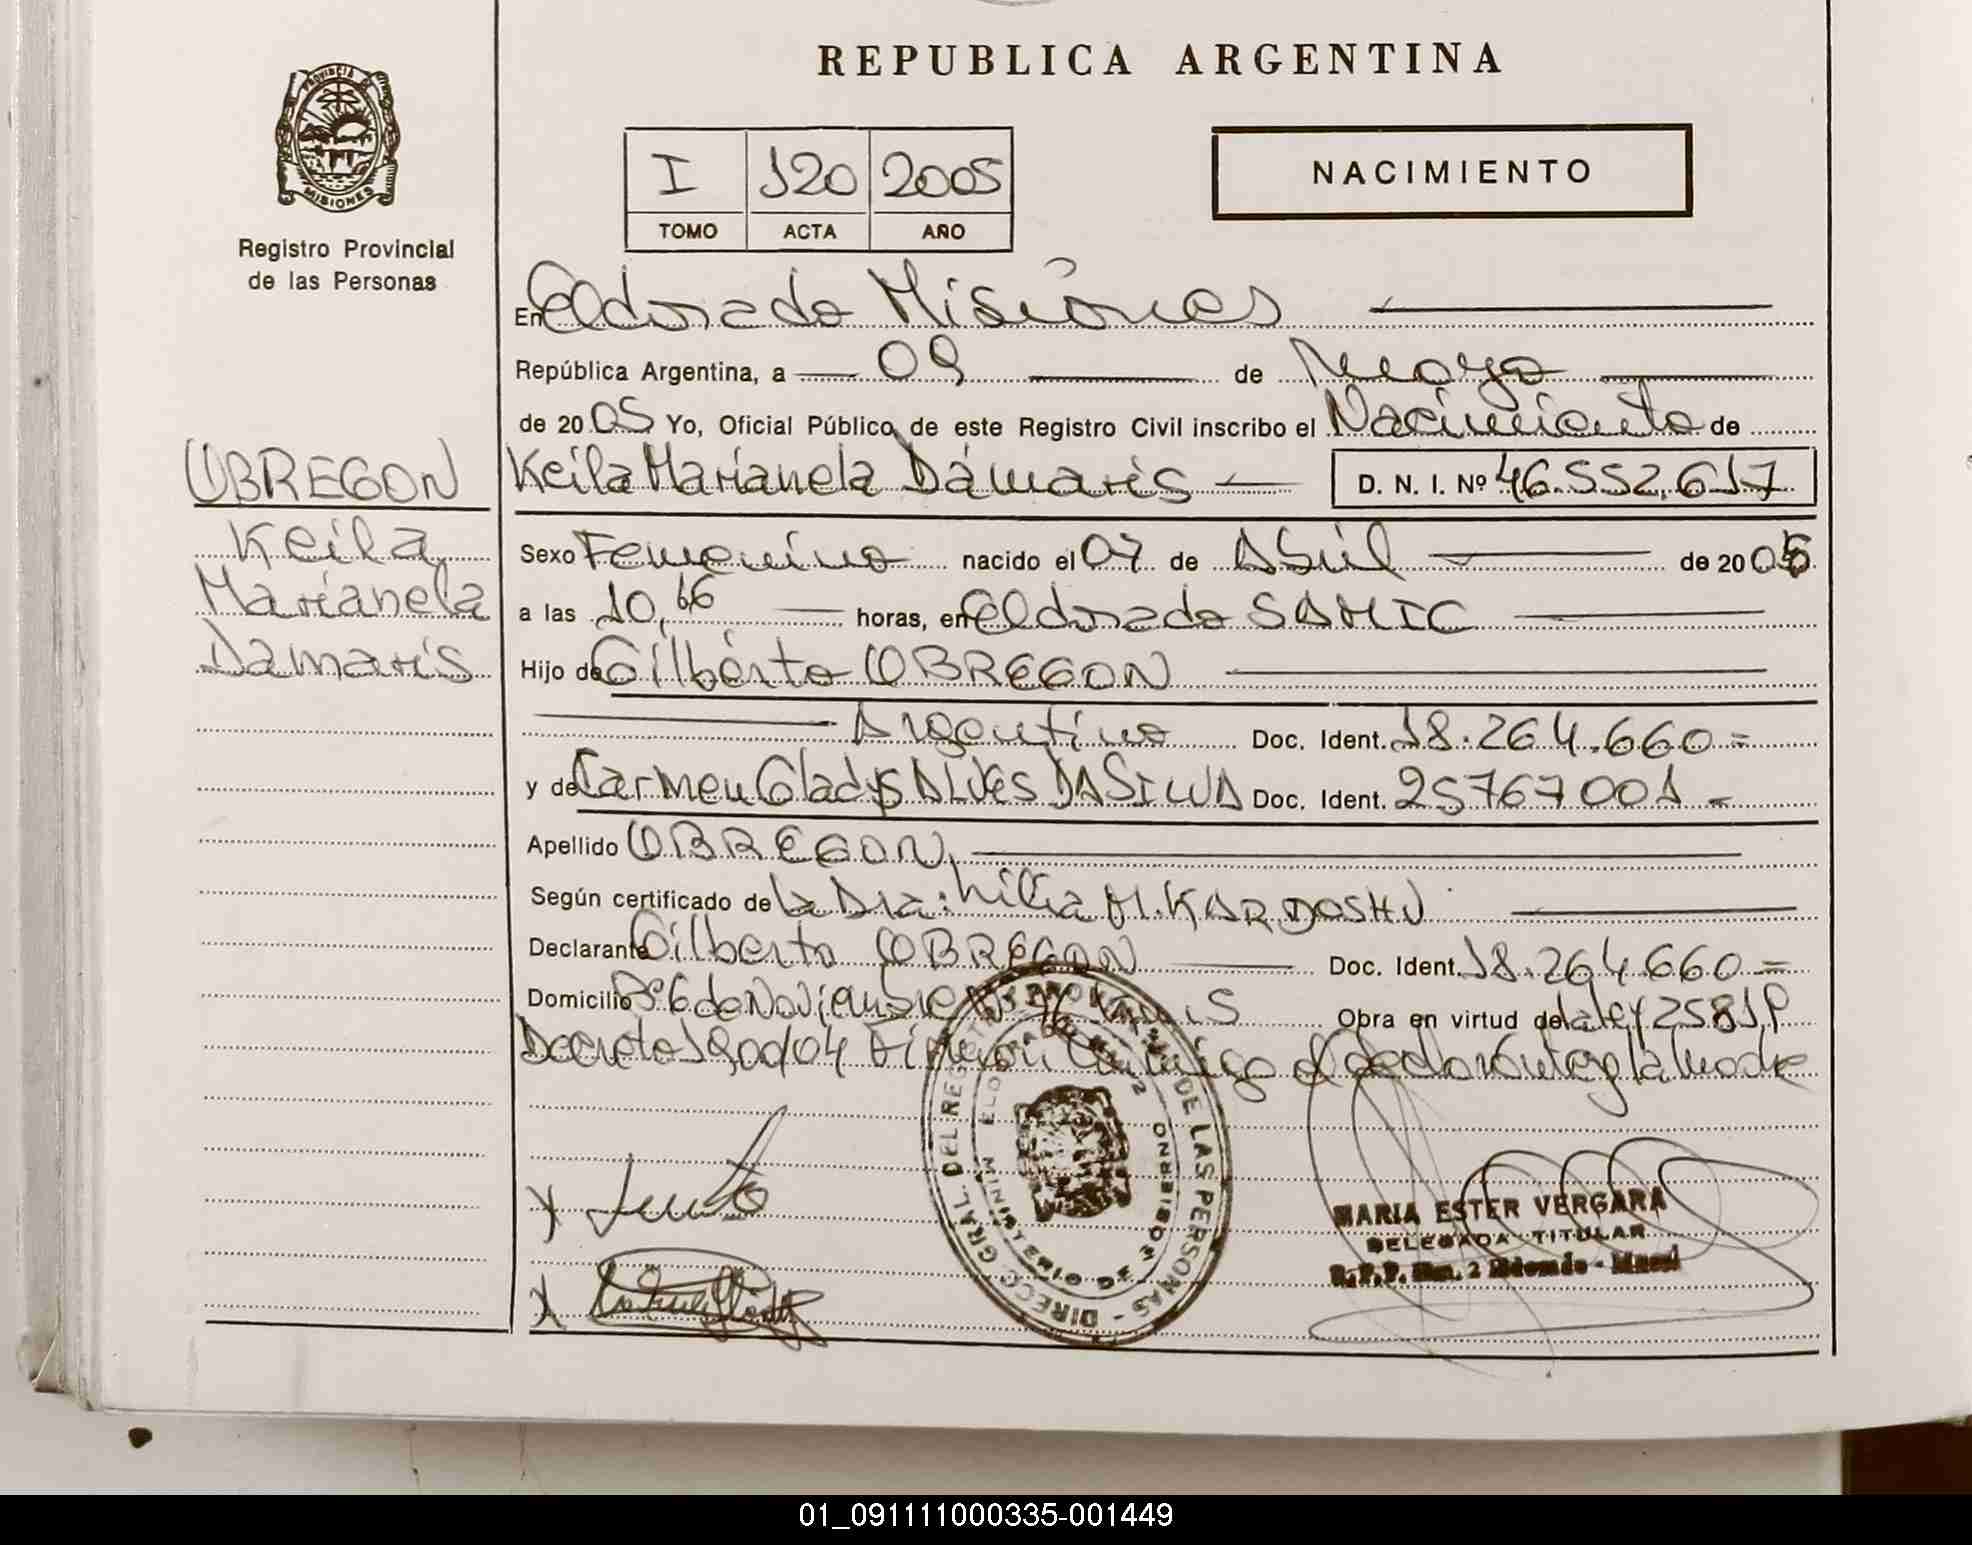 REPUBLICA ARGENTINA
PROVINCIA DE MISIONES
Registro Provincial
de las Personas
I 120 2005
TOMO ACTA AÑO
NACIMIENTO
En Eldorado Misiones
República Argentina, a 09 de Mayo
de 2005 Yo, Oficial Público de este Registro Civil inscribo el Nacimiento de
OBREGON
Keila
Marianela
Damaris
Keila Marianela Dámaris D. N. I. Nº 46.552.617
Sexo Femenino nacido el 07 de Abril de 2005
a las 10, horas, en Eldorado SAMIC
Hijo de Gilberto OBREGON
Argentino Doc. Ident. 18.264.660=
y de Carmen Gladys ALVES DA SILVA Doc. Ident. 25767001
Apellido OBREGON
Según certificado de la Dra: Lilia M. KARDOSHJ
Declarante Gilberto OBREGON Doc. Ident. 18.264.660=
Domicilio Bº 6 de Noviembre Obra en virtud de la ley 25819
Decreto 1900/04 Firman conmigo el declarante y la madre
DIRECC. GRAL. DEL REGISTRO PROVINCIAL DE LAS PERSONAS
MINISTERIO DE GOBIERNO
MARIA ESTER VERGARA
DELEGADA TITULAR
R.P.P. 2 Eldorado - Mnes
01_091111000335-001449